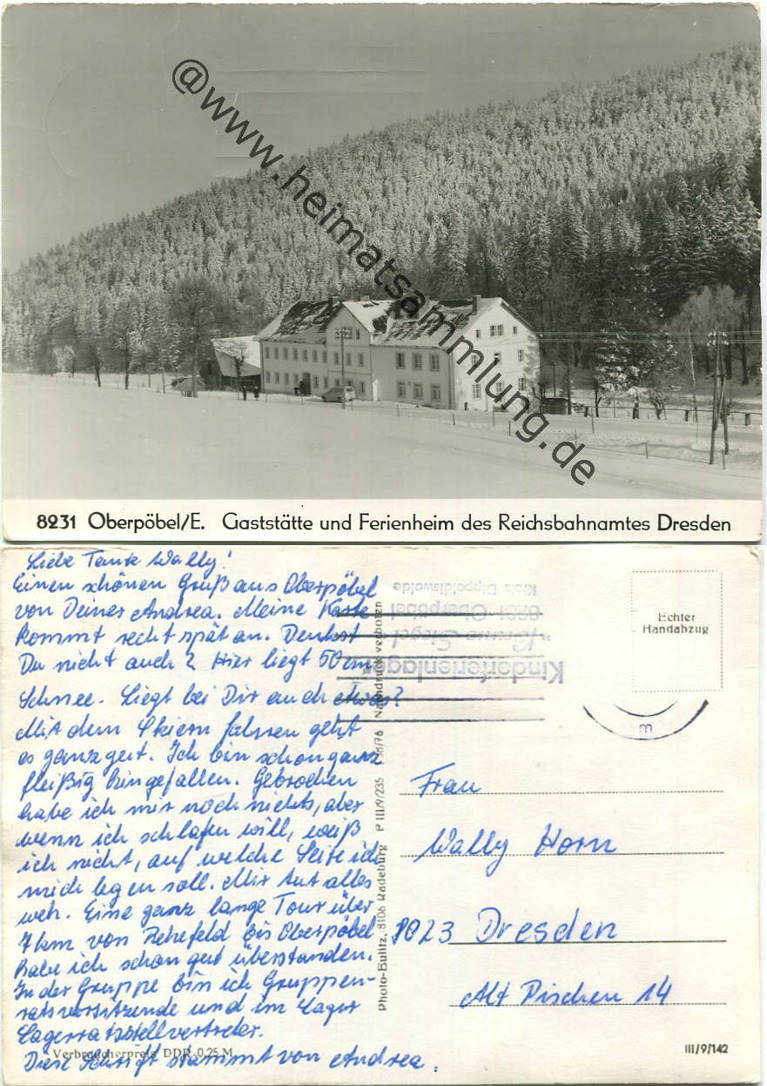 @www.heimatsammlung.de
8231 Oberpöbel/E. Gaststätte und Ferienheim des Reichsbahnamtes Dresden
Liebe Tante Wally!
Einen schönen Gruß aus Oberpöbel
von Deiner Andrea. Meine Karte
kommt recht spät an. Denkst
Du nicht auch? Hier liegt 50 cm
Schnee. Liegt bei Dir auch etwas?
Mit dem Skiern fahren geht
es ganz gut. Ich bin schon ganz
fleißig hingefallen. Gebrochen
habe ich mir noch nichts, aber
wenn ich schlafen will, weiß
ich nicht, auf welche Seite ich
mich legen soll. Mir tut alles
weh. Eine ganz lange Tour über
7 km von Rehefeld bis Oberpöbel
habe ich schon gut überstanden.
In der Gruppe bin ich Gruppen-
ratsvorsitzende und im Lager
Lagerratsstellvertreter.
Diese Schrift stammt von Andrea.
Verbraucherpreis DDR 0,25 M
Photo-Bulitz, 8106 Radeburg P III/9/235 Nachdruck verboten
Kinderferienlager
8231 Oberpöbel
Kreis Dippoldiswalde
Echter
Handabzug
m
Frau
Wally Horn
8023 Dresden
Alt Pischen 14
III/9/142